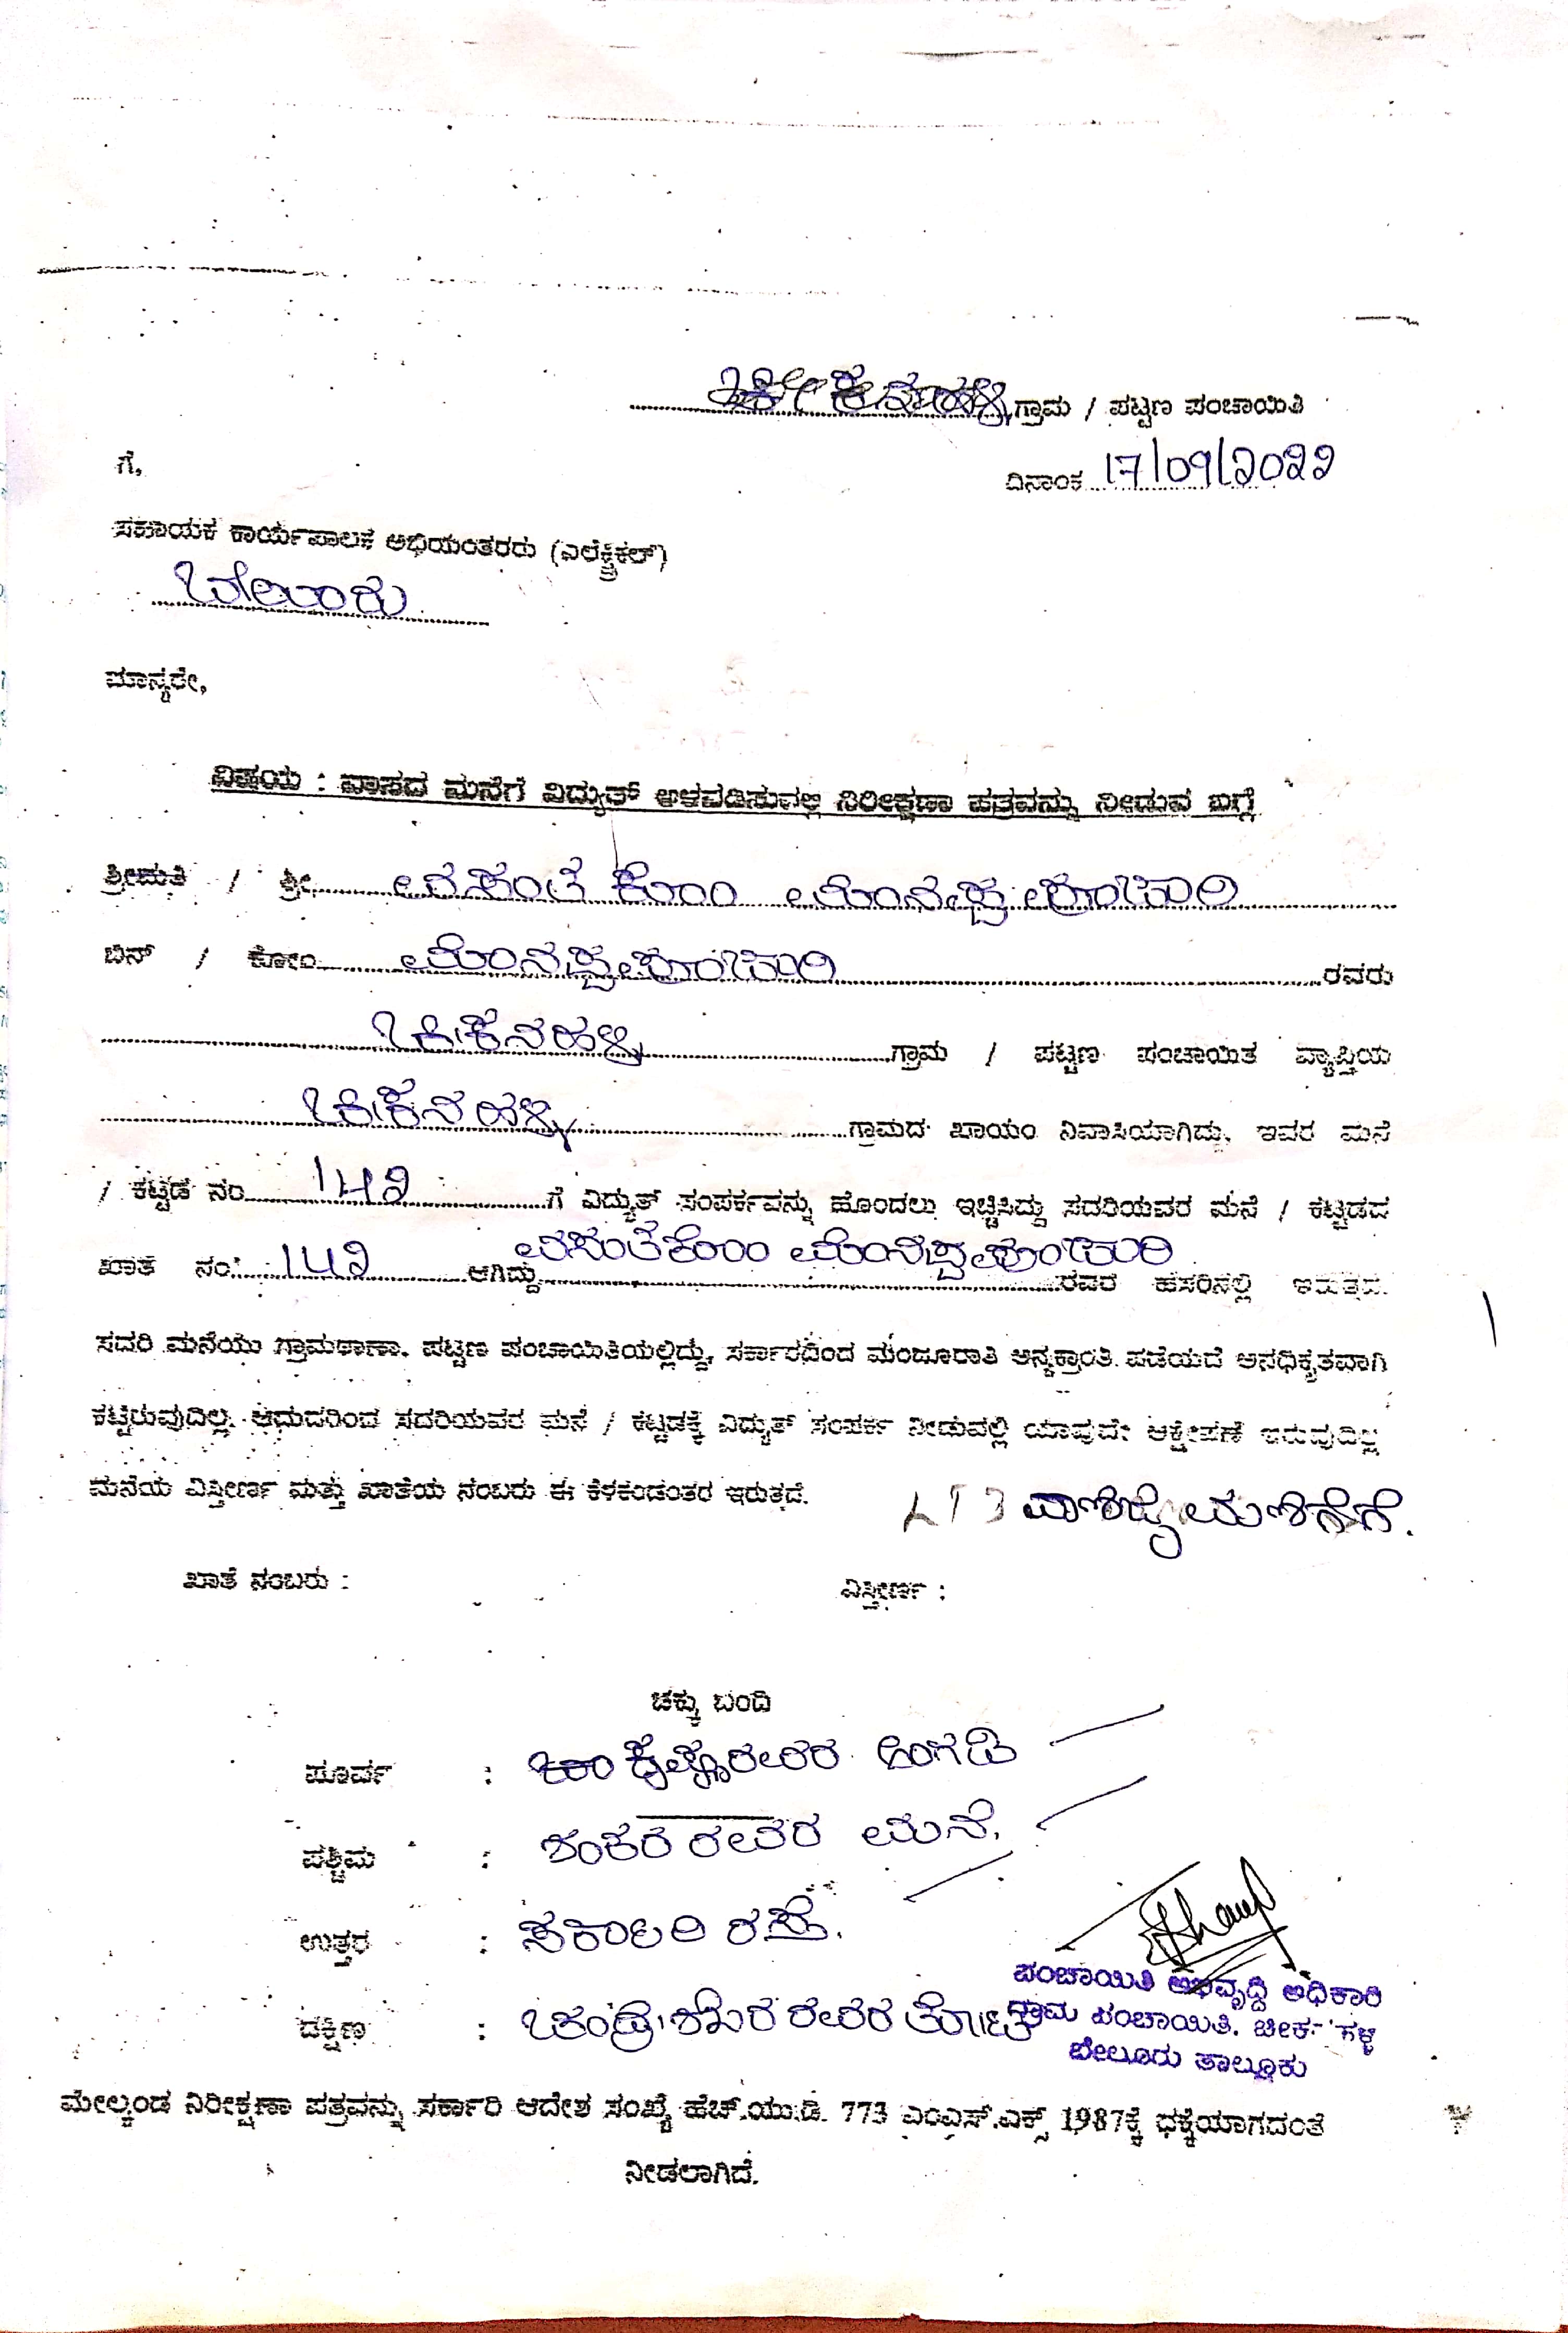 ಗ್ರಾಮ / ಪಟ್ಟಣ ಪಂಚಾಯಿತಿ
ಗೆ,
ದಿನಾಂಕ 17/09/2022
ಸಹಾಯಕ ಕಾರ್ಯಪಾಲಕ ಅಭಿಯಂತರರು (ಎಲೆಕ್ಟ್ರಿಕಲ್)
ಬೇಲೂರು
ಮಾನ್ಯರೇ,
ವಿಷಯ : ವಾಸದ ಮನೆಗೆ ವಿದ್ಯುತ್ ಅಳವಡಿಸುವಲ್ಲಿ ನಿರೀಕ್ಷಣಾ ಪತ್ರವನ್ನು ನೀಡುವ ಬಗ್ಗೆ
ಶ್ರೀಮತಿ / ಶ್ರೀ ವಸಂತ ಕೋಂ ಮೋನಪ್ಪಪೂಜಾರಿ
ಬಿನ್ / ಕೋಂ ಮೋನಪ್ಪಪೂಜಾರಿ ರವರು
ಚೀಕನಹಳ್ಳಿ ಗ್ರಾಮ / ಪಟ್ಟಣ ಪಂಚಾಯಿತ ವ್ಯಾಪ್ತಿಯ
ಚೀಕನಹಳ್ಳಿ ಗ್ರಾಮದ ಖಾಯಂ ನಿವಾಸಿಯಾಗಿದ್ದು, ಇವರ ಮನೆ
/ ಕಟ್ಟಡ ನಂ 142 ಗೆ ವಿದ್ಯುತ್ ಸಂಪರ್ಕವನ್ನು ಹೊಂದಲು ಇಚ್ಚಿಸಿದ್ದು ಸದರಿಯವರ ಮನೆ / ಕಟ್ಟಡದ
ಖಾತೆ ನಂ. 142 ಆಗಿದ್ದು ವಸಂತ ಕೋಂ ಮೋನಪ್ಪಪೂಜಾರಿ ರವರ ಹೆಸರಿನಲ್ಲಿ ಇರುತ್ತದೆ.
ಸದರಿ ಮನೆಯು ಗ್ರಾಮಠಾಣಾ. ಪಟ್ಟಣ ಪಂಚಾಯಿತಿಯಲ್ಲಿದ್ದು, ಸರ್ಕಾರದಿಂದ ಮಂಜೂರಾತಿ ಅನ್ಯಕ್ರಾಂತಿ ಪಡೆಯದೆ ಅನಧಿಕೃತವಾಗಿ
ಕಟ್ಟಿರುವುದಿಲ್ಲ. ಆದುದರಿಂದ ಸದರಿಯವರ ಮನೆ / ಕಟ್ಟಡಕ್ಕೆ ವಿದ್ಯುತ್ ಸಂಪರ್ಕ ನೀಡುವಲ್ಲಿ ಯಾವುದೇ ಆಕ್ಷೇಪಣೆ ಇರುವುದಿಲ್ಲ
ಮನೆಯ ವಿಸ್ತೀರ್ಣ ಮತ್ತು ಖಾತೆಯ ನಂಬರು ಈ ಕೆಳಕಂಡಂತರ ಇರುತ್ತದೆ.
LT3 ವಾಣಿಜ್ಯ ಮಳಿಗೆಗೆ.
ಖಾತೆ ನಂಬರು : ವಿಸ್ತೀರ್ಣ :
ಚಕ್ಕು ಬಂದಿ
ಪೂರ್ವ : ರವರ ಅಂಗಡಿ
ಪಶ್ಚಿಮ : ಶಂಕರ ರವರ ಮನೆ.
ಉತ್ತರ : ಸರ್ಕಾರಿ ರಸ್ತೆ.
ದಕ್ಷಿಣ : ಚಂದ್ರಶೇಖರ ರವರ ತೋಟ
ಪಂಚಾಯಿತಿ ಅಭಿವೃದ್ಧಿ ಅಧಿಕಾರಿ
ಗ್ರಾಮ ಪಂಚಾಯಿತಿ. ಚೀಕನಹಳ್ಳಿ
ಬೇಲೂರು ತಾಲ್ಲೂಕು
ಮೇಲ್ಕಂಡ ನಿರೀಕ್ಷಣಾ ಪತ್ರವನ್ನು ಸರ್ಕಾರಿ ಆದೇಶ ಸಂಖ್ಯೆ ಹೆಚ್.ಯು.ಡಿ. 773 ಎಂಎಸ್.ಎಕ್ಸ್ 1987ಕ್ಕೆ ಧಕ್ಕೆಯಾಗದಂತೆ
ನೀಡಲಾಗಿದೆ.